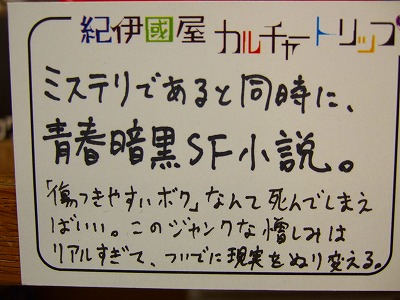 紀伊國屋 カルチャートリップ
ミステリであると同時に、
青春暗黒SF小説。
「傷つきやすいボク」なんて死んでしまえ
ばいい。このジャンクな憎しみは
リアルすぎて、ついでに現実をぬり変える。